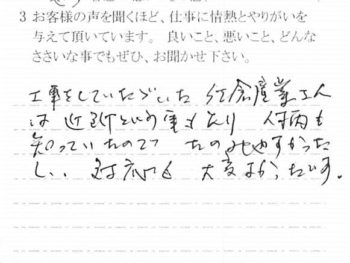 3 お客様の声を聞くほど、仕事に情熱とやりがいを
与えて頂いています。 良いこと、悪いこと、どんな
ささいな事でもぜひ、お聞かせ下さい。
工事をしていただいた 佐倉産業さん
は 近所という事もあり 人柄も
知っていたので たのみやすかった
し、 対応も 大変よかったです。